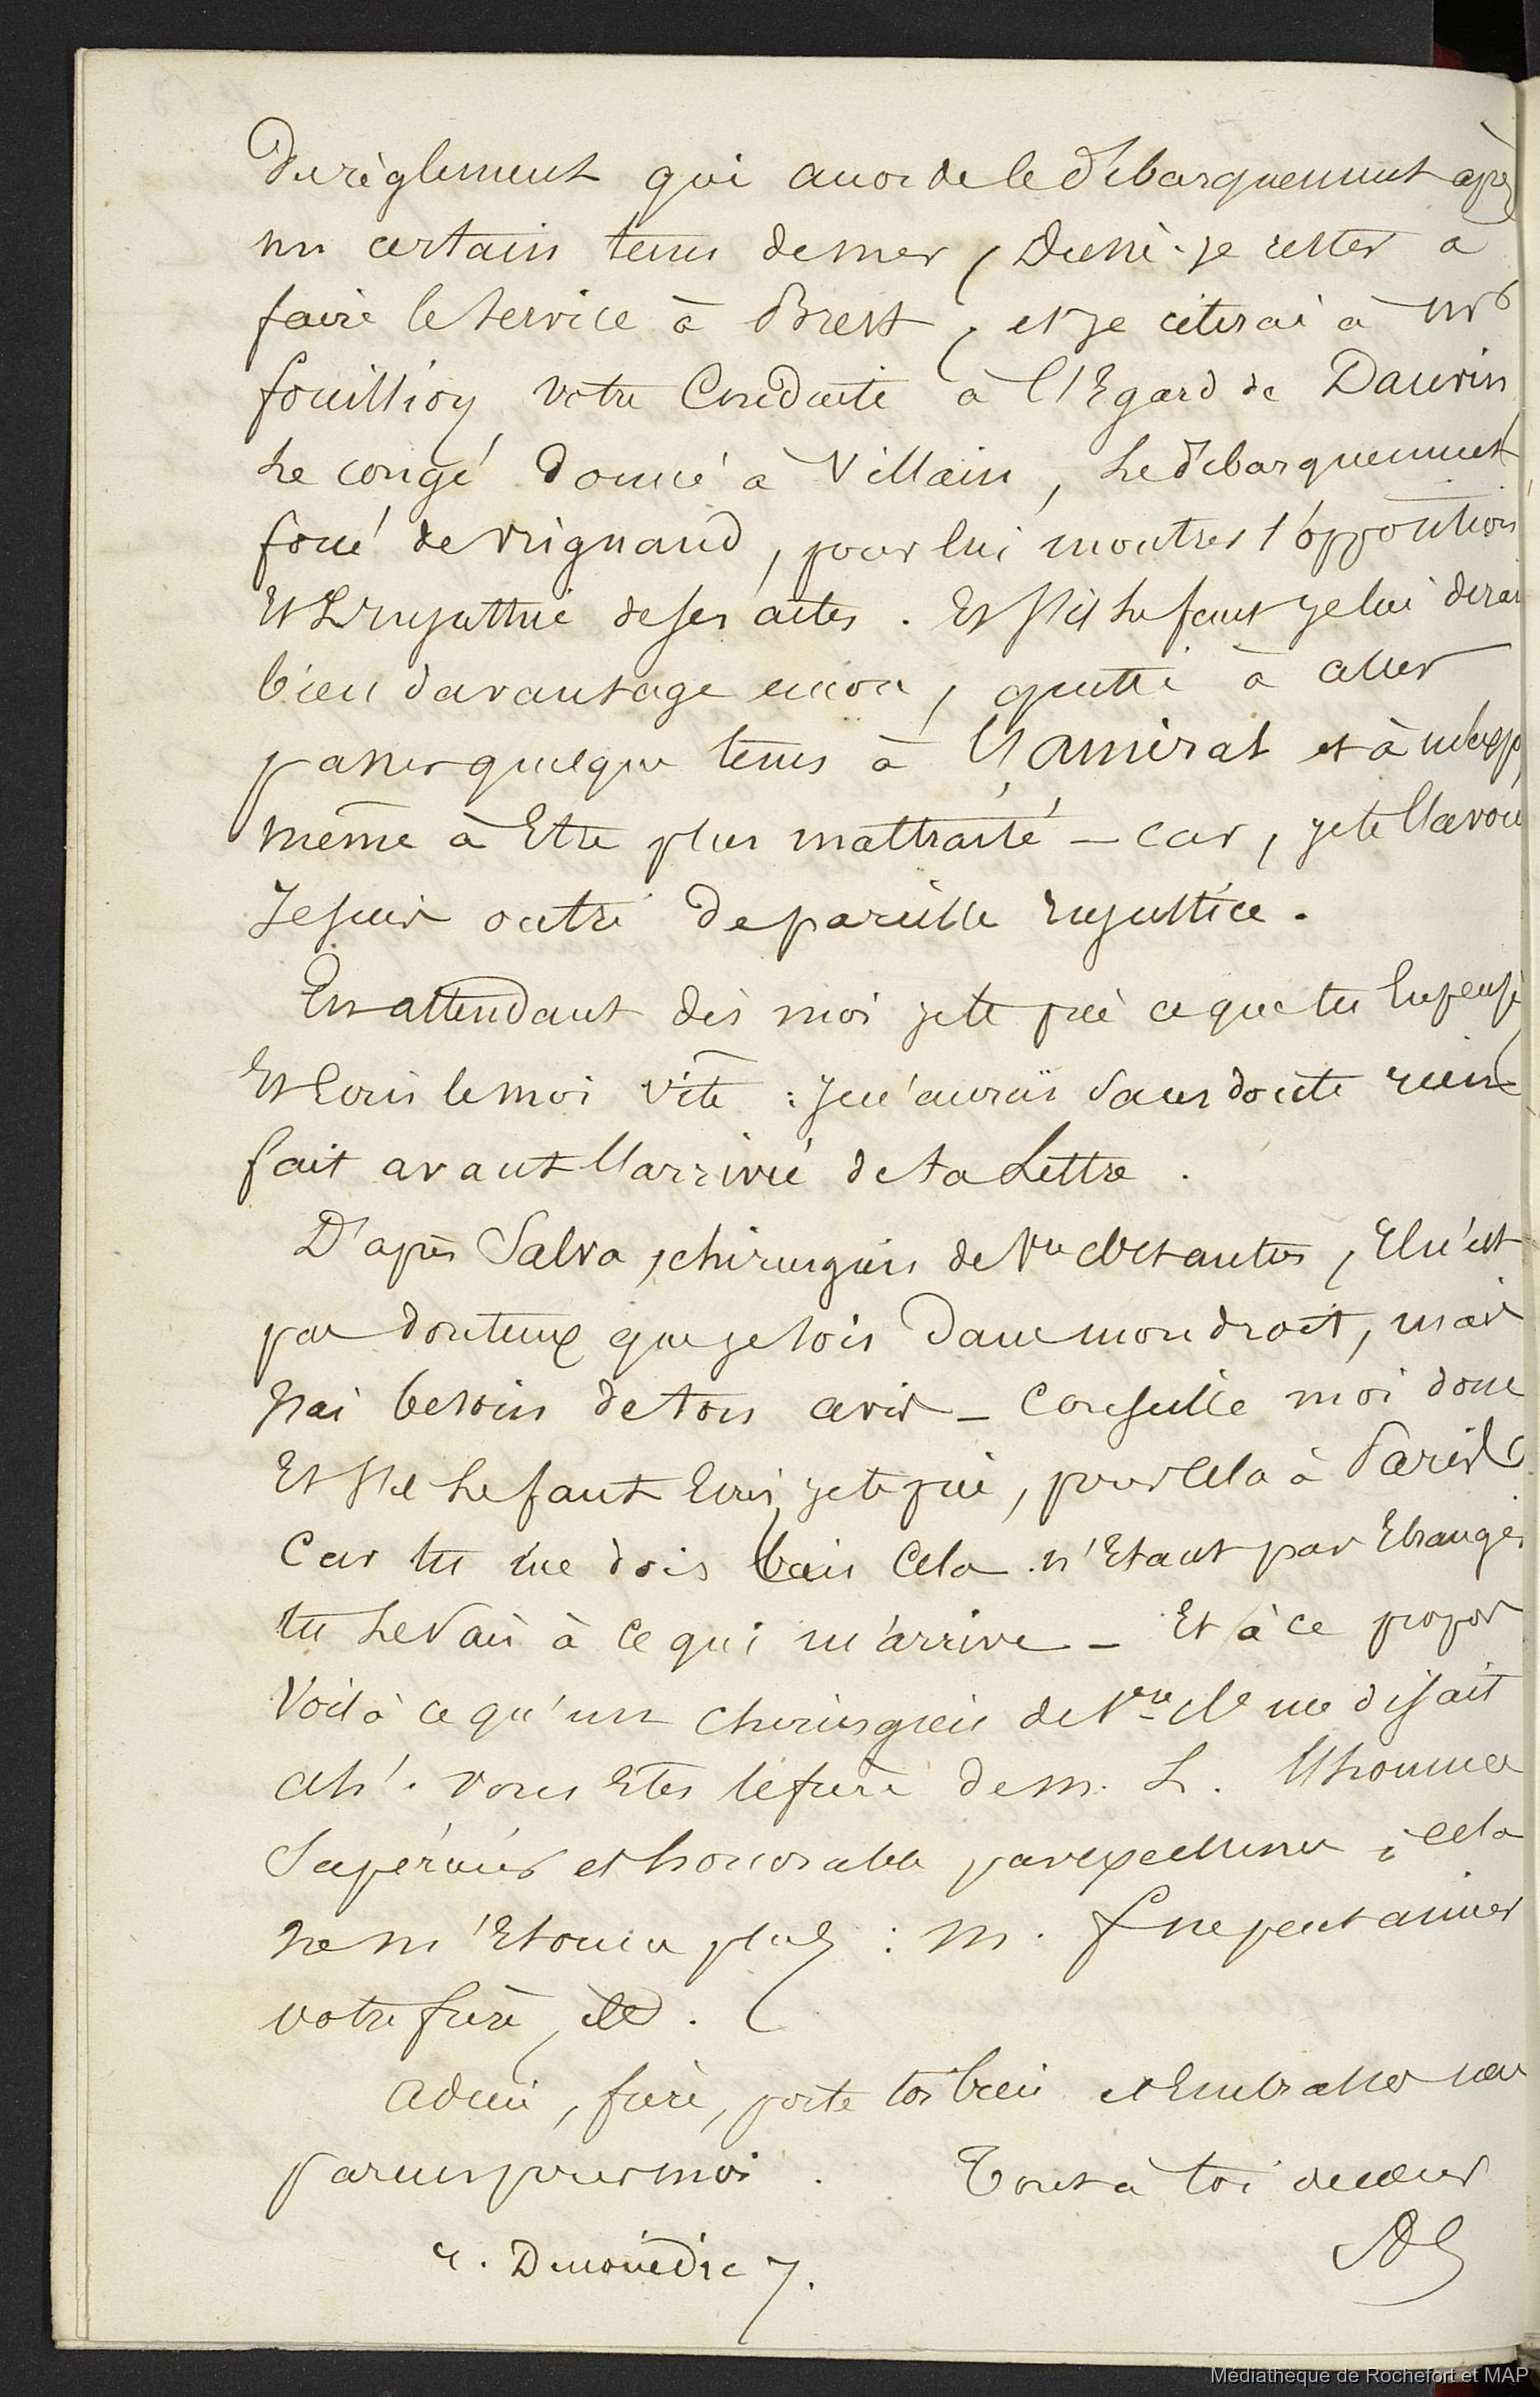 du règlement qui accorde le débarquement après
un certain tems de mer, Dussè-je rester à
faire le service à Brest, et je citerai à Mr
fouillioy votre Conduite à l'Egard de Dauvin
le congé donné à Villain, le débarquement
forcé de vrignaud, pour lui montrer l'opposition
Et L'injustice de ses actes. Et s'il le faut je lui dirai
bien davantage encore, quitte à aller
passer quelque tems à l'amiral et à
même à Etre plus maltraité – car, je te l'avoue
Je suis outré de pareille injustice.
En attendant dis moi je te prie ce que tu En penses
Et Ecris le moi vite : je n'aurai sans doute rien
fait avant l'arrivée de ta Lettre.
D'après Salva, chirurgien de 1re cl et autres, Il n'est
pas douteux que je sois dans mon droit, mais
j'ai besoin de ton avis – Conseille moi donc
Et s'il le faut Ecris, je te prie, pour cela à Paris
Car tu me dois bien Cela n'Etant pas Etranger
tu le sais à ce qui m'arrive – Et à ce propos
Voilà ce qu'un chirurgien de 1re cl me disait
ah! vous Etes le frère de M. L. l'homme
Supérieur et honorable par excellence ; cela
ne m'Etonne plus : M. f ne peut aimer
votre frère, etc.
Adieu, frère, porte toi bien et Embrasse nos
parens pour moi. Tout à toi de cœur
r. Dmouëdic 7.